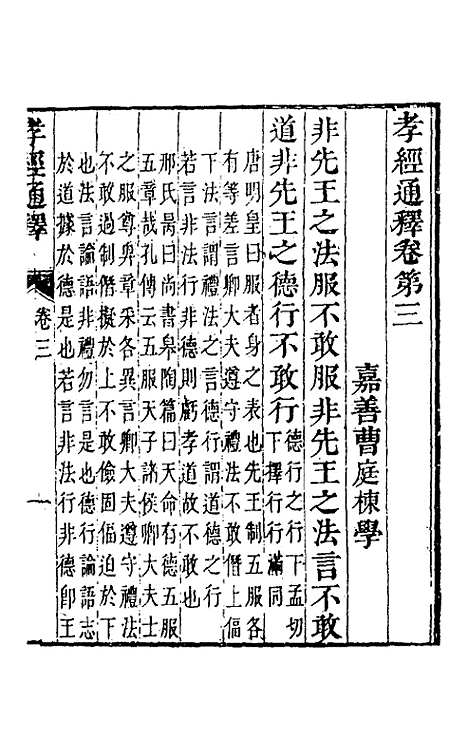 孝經通釋卷第三
嘉善曹庭棟學
非先王之法服不敢服非先王之法言不敢
道非先王之德行不敢行德行之行下孟切
下擇行行滿同
唐明皇曰服者身之表也先王制五服各
有等差言卿大夫遵守禮法不敢僭上偪
下法言謂禮法之言德行謂道德之行
若言非法行非德則虧孝道故不敢也
邢氏昺曰尚書皋陶篇曰天命有德五服
五章哉孔傳云五服天子諸侯卿大夫士
之服尊卑章采各異言卿大夫遵守禮法
不敢過制僭擬於上不敢儉固偪迫於下
也法言論語非禮勿言是也德行論語志
於道據於德是也若言非法行非德卽王
孝經通釋
卷三
一